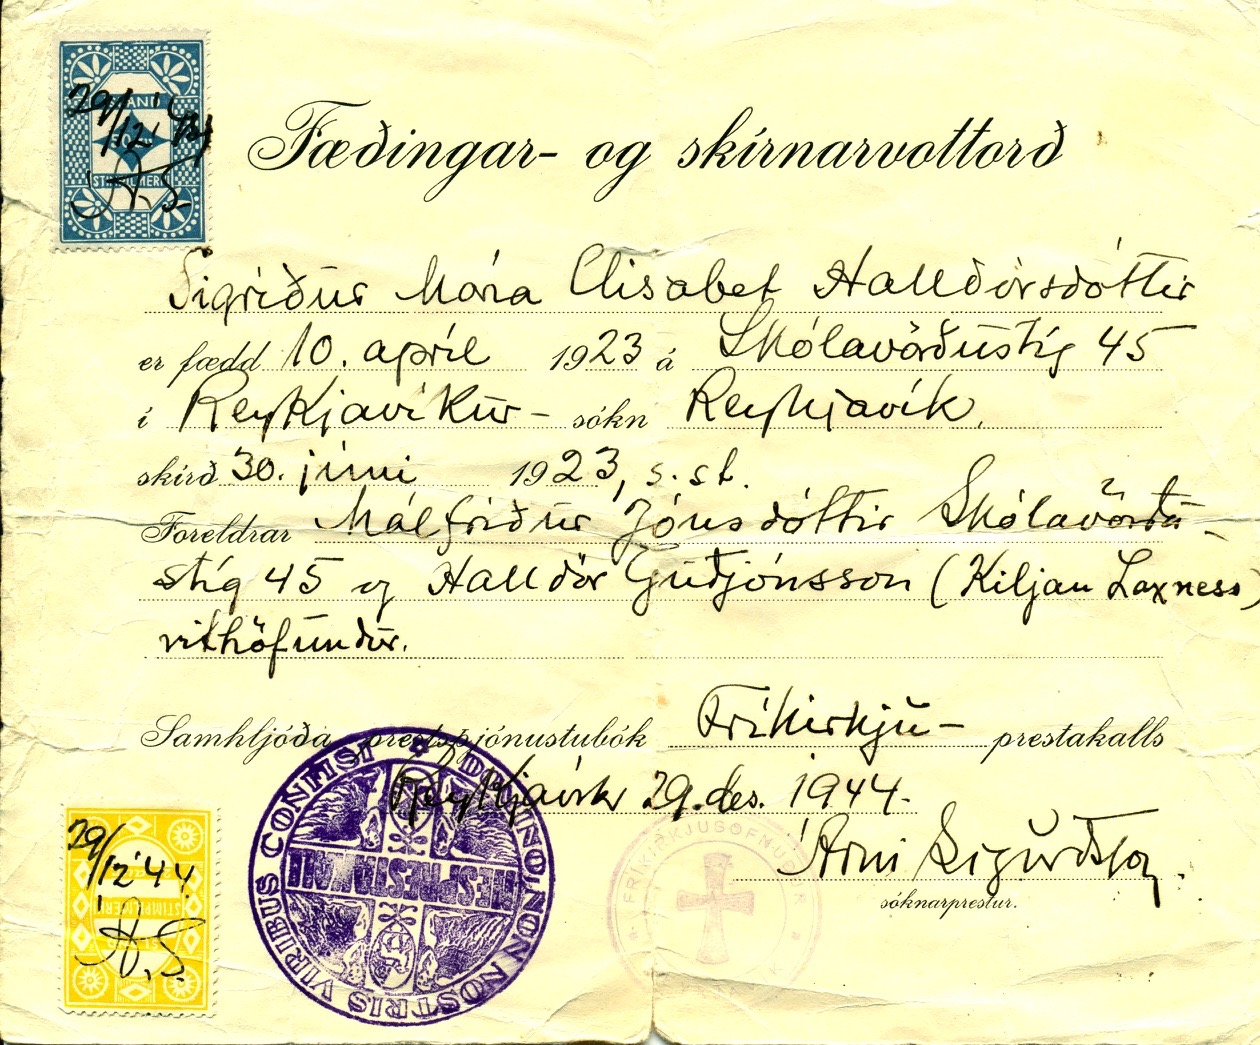 Fæðingar- og skírnarvottorð
29/12'44
Á.S.
Sigríður María Elisabet Halldórsdóttir
er fædd 10. apríl 1923 á Skólavörðustíg 45
í Reykjavíkur- sókn Reykjavík.
skírð 30. júní 1923, s. st.
Foreldrar Málfríður Jónsdóttir Skólavörðu-
stíg 45 og Halldór Guðjónsson (Kiljan Laxness)
rithöfundur.
Samhljóða prestsþjónustubók Fríkirkju- prestakalls
Reykjavík 29. des. 1944.
Árni Sigurðsson.
sóknarprestur.
29/12'44
STIMPILMERKI
Á.S.
DOMINO, NON NOSTRIS VIRIBUS CONFISI
FRÍKIRKJUSÖFNUÐUR